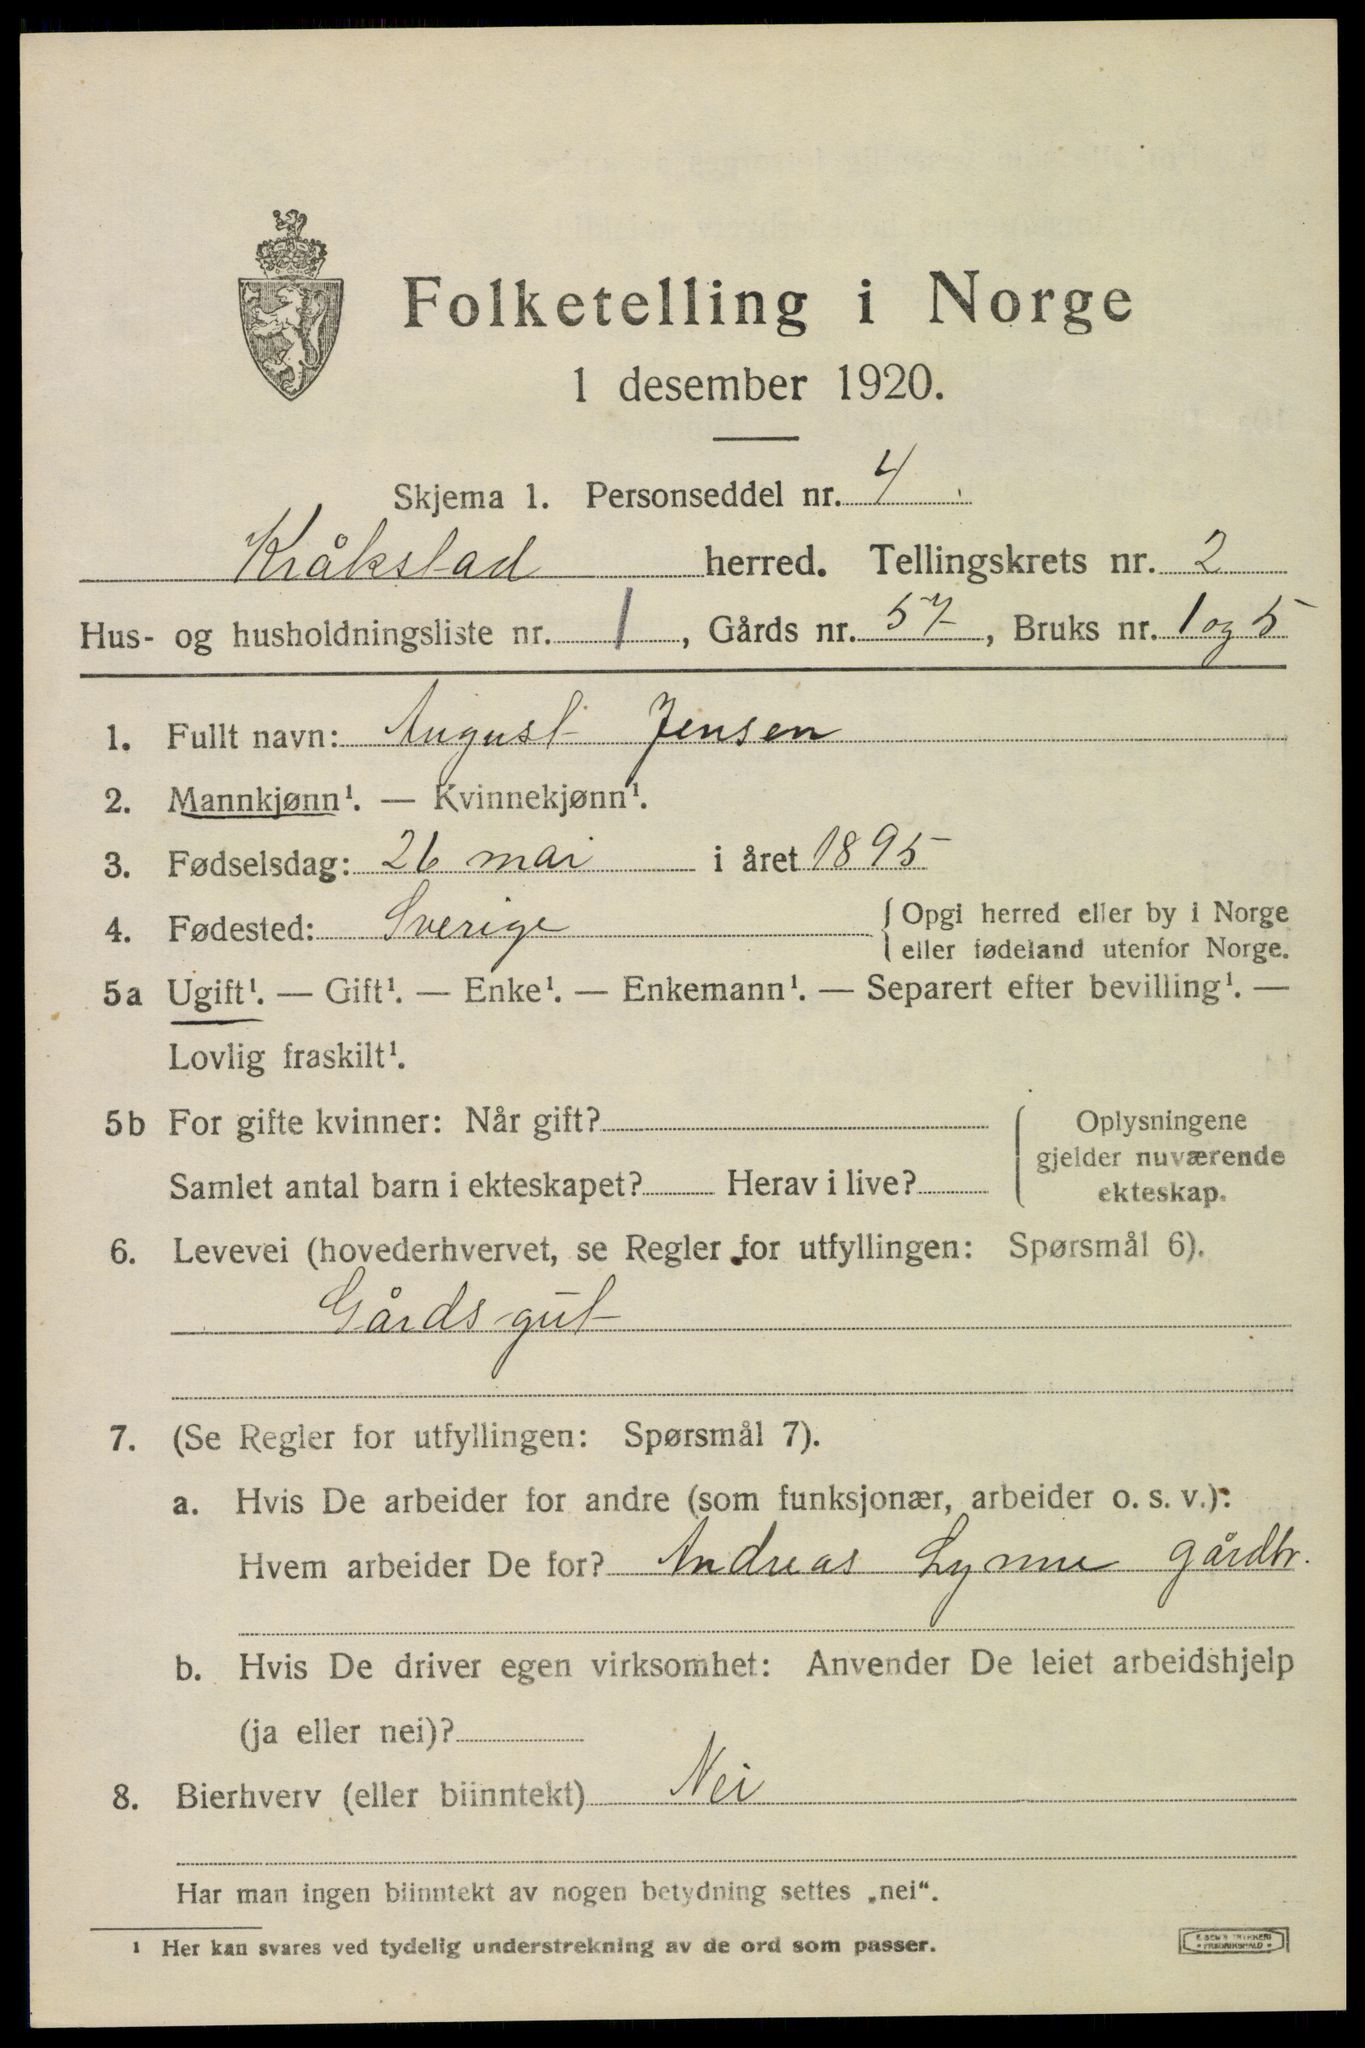 Folketelling i Norge
1 desember 1920.
Skjema 1. Personseddel nr. 4.
Kråkstad herred. Tellingskrets nr. 2
Hus- og husholdningsliste nr. 1, Gårds nr. 57, Bruks nr. 1 og 5
1. Fullt navn: August Jensen
2. Mannkjønn¹. — Kvinnekjønn¹.
3. Fødselsdag: 26 mai i året 1895
4. Fødested: Sverige { Opgi herred eller by i Norge
eller fødeland utenfor Norge.
5a Ugift¹. — Gift¹. — Enke¹. — Enkemann¹. — Separert efter bevilling¹. —
Lovlig fraskilt¹.
5b For gifte kvinner: Når gift? { Oplysningene
gjelder nuværende
Samlet antal barn i ekteskapet? Herav i live? ekteskap.
6. Levevei (hovederhvervet, se Regler for utfyllingen: Spørsmål 6).
Gårdsgut
7. (Se Regler for utfyllingen: Spørsmål 7).
a. Hvis De arbeider for andre (som funksjonær, arbeider o. s. v.):
Hvem arbeider De for? Andreas Lynne gårdbr.
b. Hvis De driver egen virksomhet: Anvender De leiet arbeidshjelp
(ja eller nei)?
8. Bierhverv (eller biinntekt) Nei
Har man ingen biinntekt av nogen betydning settes „nei“.
¹ Her kan svares ved tydelig understrekning av de ord som passer.